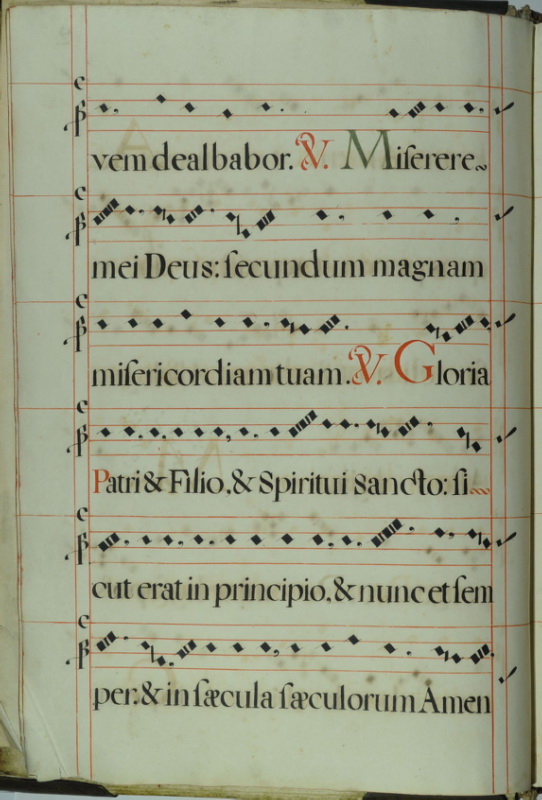 vem dealbabor. ℣. Miſerere
mei Deus: ſecundum magnam
miſericordiam tuam. ℣. Gloria
Patri & Filio, & Spiritui sancto: ſi
cut erat in principio, & nunc et ſem
per: & in ſæcula ſæculorum Amen